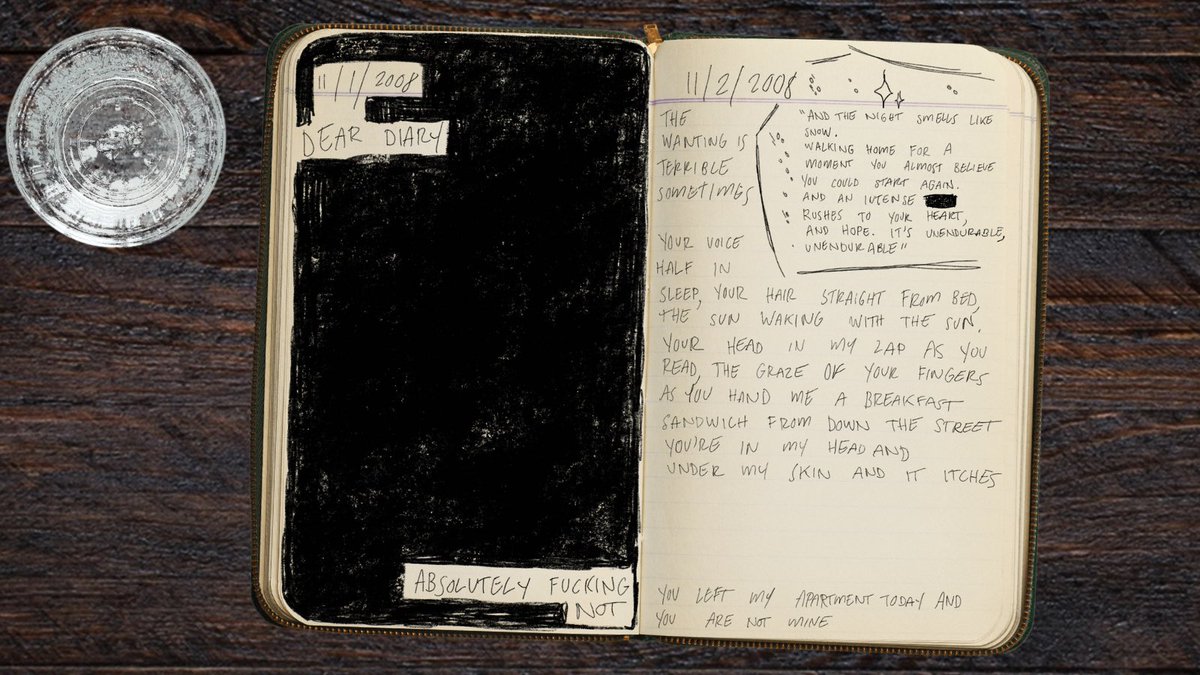 11/1/2008
DEAR DIARY
ABSOLUTELY FUCKING
NOT
11/2/2008
THE
WANTING IS
TERRIBLE
SOMETIMES
"AND THE NIGHT SMELLS LIKE
SNOW.
WALKING HOME FOR A
MOMENT YOU ALMOST BELIEVE
YOU COULD START AGAIN.
AND AN INTENSE
RUSHES TO YOUR HEART,
AND HOPE. IT'S UNENDURABLE,
UNENDURABLE"
YOUR VOICE
HALF IN
SLEEP, YOUR HAIR STRAIGHT FROM BED,
THE SUN WAKING WITH THE SUN,
YOUR HEAD IN MY LAP AS YOU
READ, THE GRAZE OF YOUR FINGERS
AS YOU HAND ME A BREAKFAST
SANDWICH FROM DOWN THE STREET
YOU'RE IN MY HEAD AND
UNDER MY SKIN AND IT ITCHES
YOU LEFT MY APARTMENT TODAY AND
YOU ARE NOT MINE